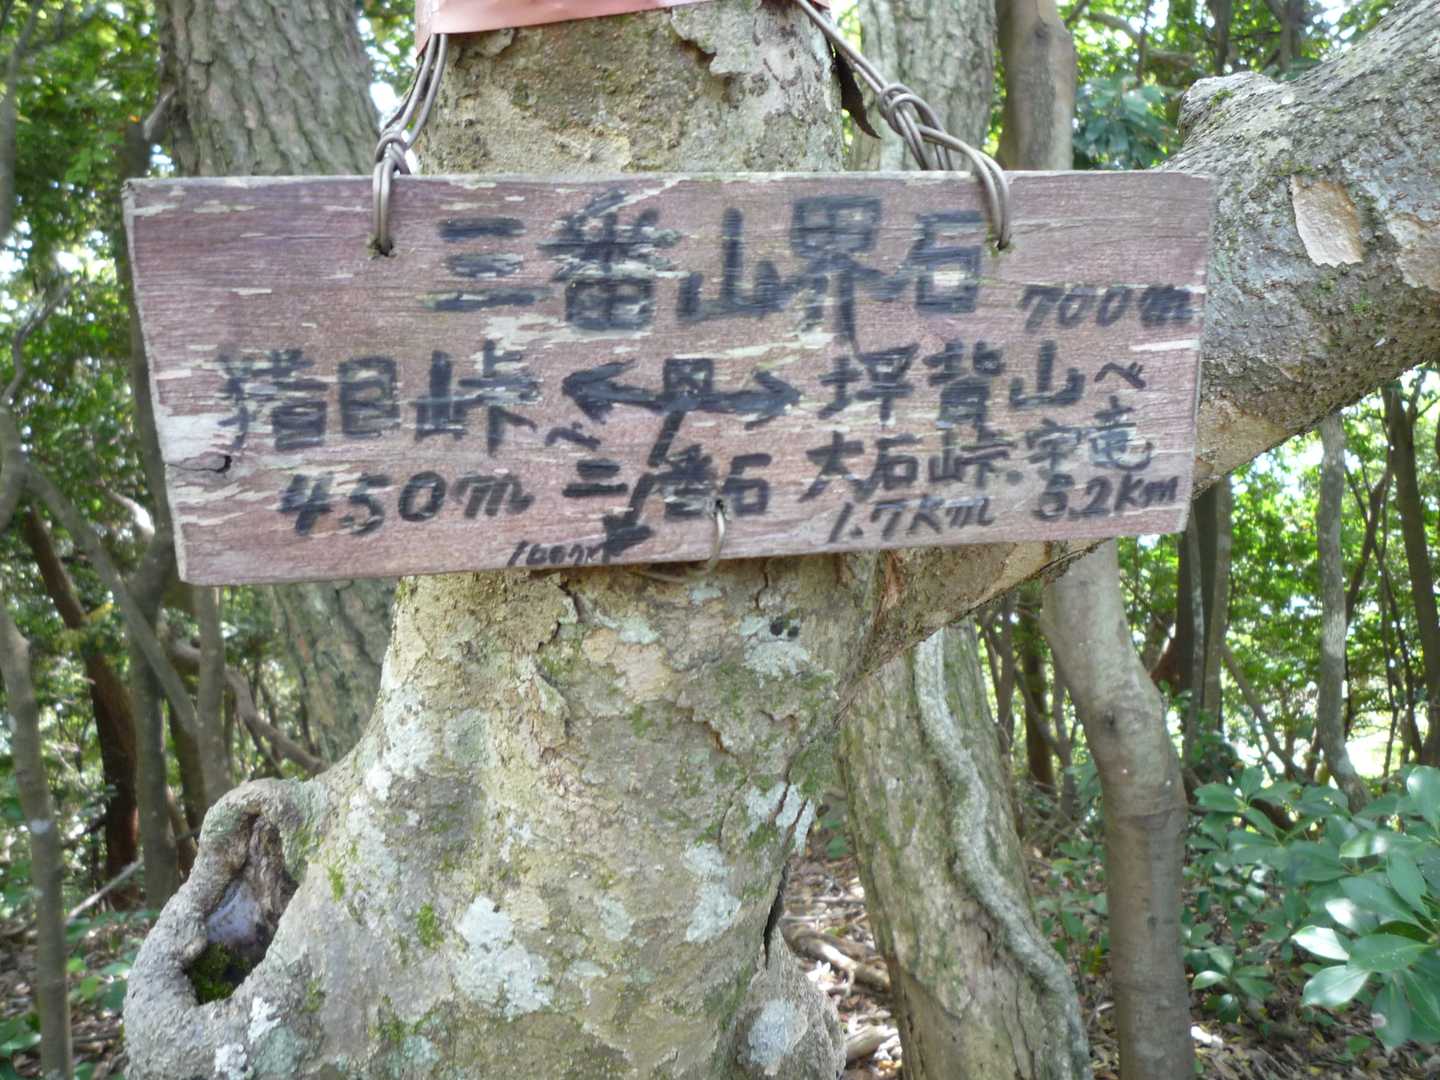 三番山界石
猪目峠 ← → 坪背山へ 700m
450m へ 三番石 大石峠、宇竜
100m 1.7Km 5.2Km